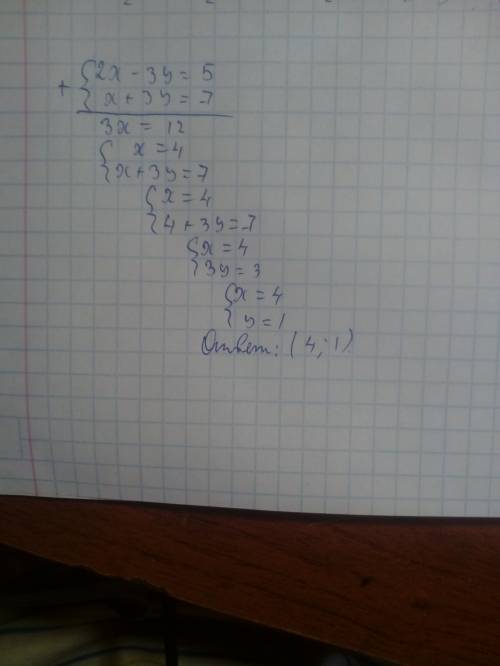 + {2x - 3y = 5
{x + 3y = 7
3x = 12
{x = 4
{x + 3y = 7
{x = 4
{4 + 3y = 7
{x = 4
{3y = 3
{x = 4
{y = 1
Ответ: (4; 1)